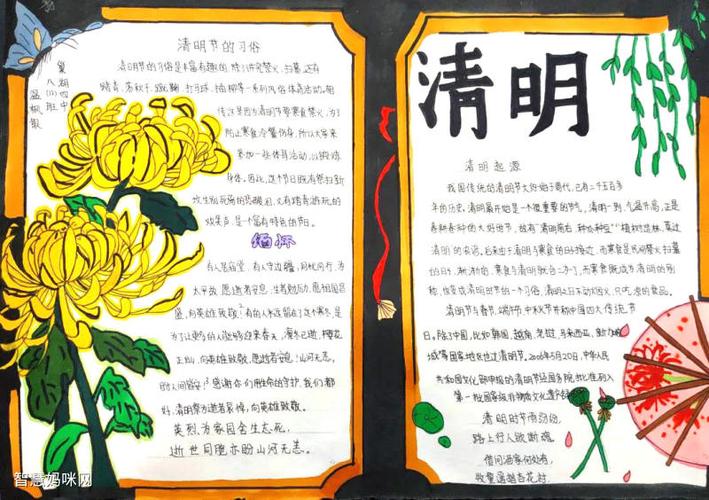 清明节的习俗
清明节的习俗是丰富有趣的,除了讲究禁火、扫墓,还有
踏青、荡秋千、蹴鞠、打马球、插柳等一系列风俗体育活动。相
传这是因为清明节要寒食禁火,为了
防止寒食冷餐伤身,所以大家来
参加一些体育活动,以锻炼
身体。因此,这个节日既有祭扫新
坟生别死离的悲酸泪,又有踏青游玩的
欢笑声,是一个富有特色的节日。
缅怀
有人居庙堂,有人守边疆,同忧同行,为
太平故,愿逝者安息,生者勉励,愿祖国昌
盛,向英雄致敬!有的人永远留在了这个寒冬,是
为了让更多的人能够迎来春天,凛冬已逝,樱花
正灿,向英雄致敬,愿逝者安息!山河无恙,
人间皆安!感谢你们用生命的守护,我们都
好,清明祭为逝者哀悼,向英雄致敬。
英烈为家国舍生忘死,
逝世同胞亦盼山河无恙。
清明
清明起源
我国传统的清明节大约始于周代,已有二千五百多
年的历史。清明最开始是一个很重要的节气,清明一到,气温升高,正是
春耕春种的大好时节,故有"清明前后,种瓜种豆""植树造林,莫过
清明"的农谚。后来由于清明与寒食的日子接近,而寒食是民间禁火扫墓
的日子,渐渐的,寒食与清明就合二为一了,而寒食既成为清明的别
称,也变成清明时节的一个习俗,清明之日不动烟火,只吃凉的食品。
清明节与春节、端午节、中秋节并称中国四大传统节
日。除了中国,比如韩国、越南、老挝、马来西亚、新加坡
等国家地区也过清明节。2006年5月20日,中华人民
共和国文化部申报的清明节经国务院批准列入
第一批国家级非物质文化遗产
清明时节雨纷纷,
路上行人欲断魂。
借问酒家何处有,
牧童遥指杏花村
智慧妈咪网